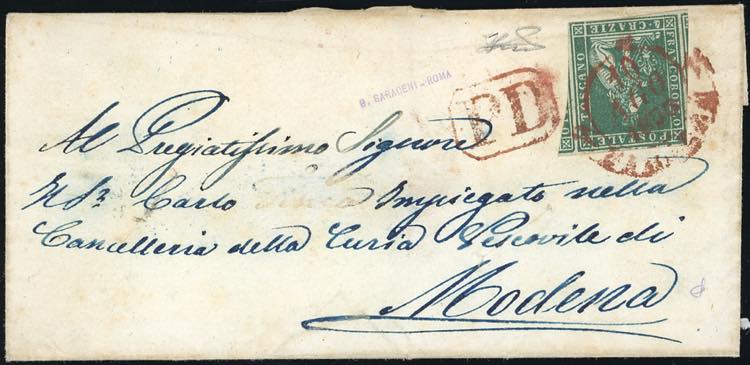 FRANCOBOLLO
POSTALE
TOSCANO
4 CRAZIE
B. SARACENI - ROMA
PD
Al Pregiatissimo Signore
Carlo Impiegato nella
Cancelleria della Curia Vescovile di
Modena